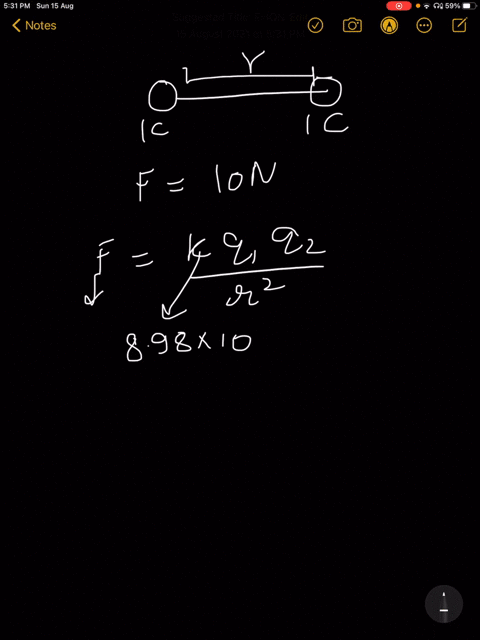 5:31 PM Sun 15 Aug 59%
Notes
r
1C 1C
F = 10N
F = k q₁ q₂
r²
8.98×10